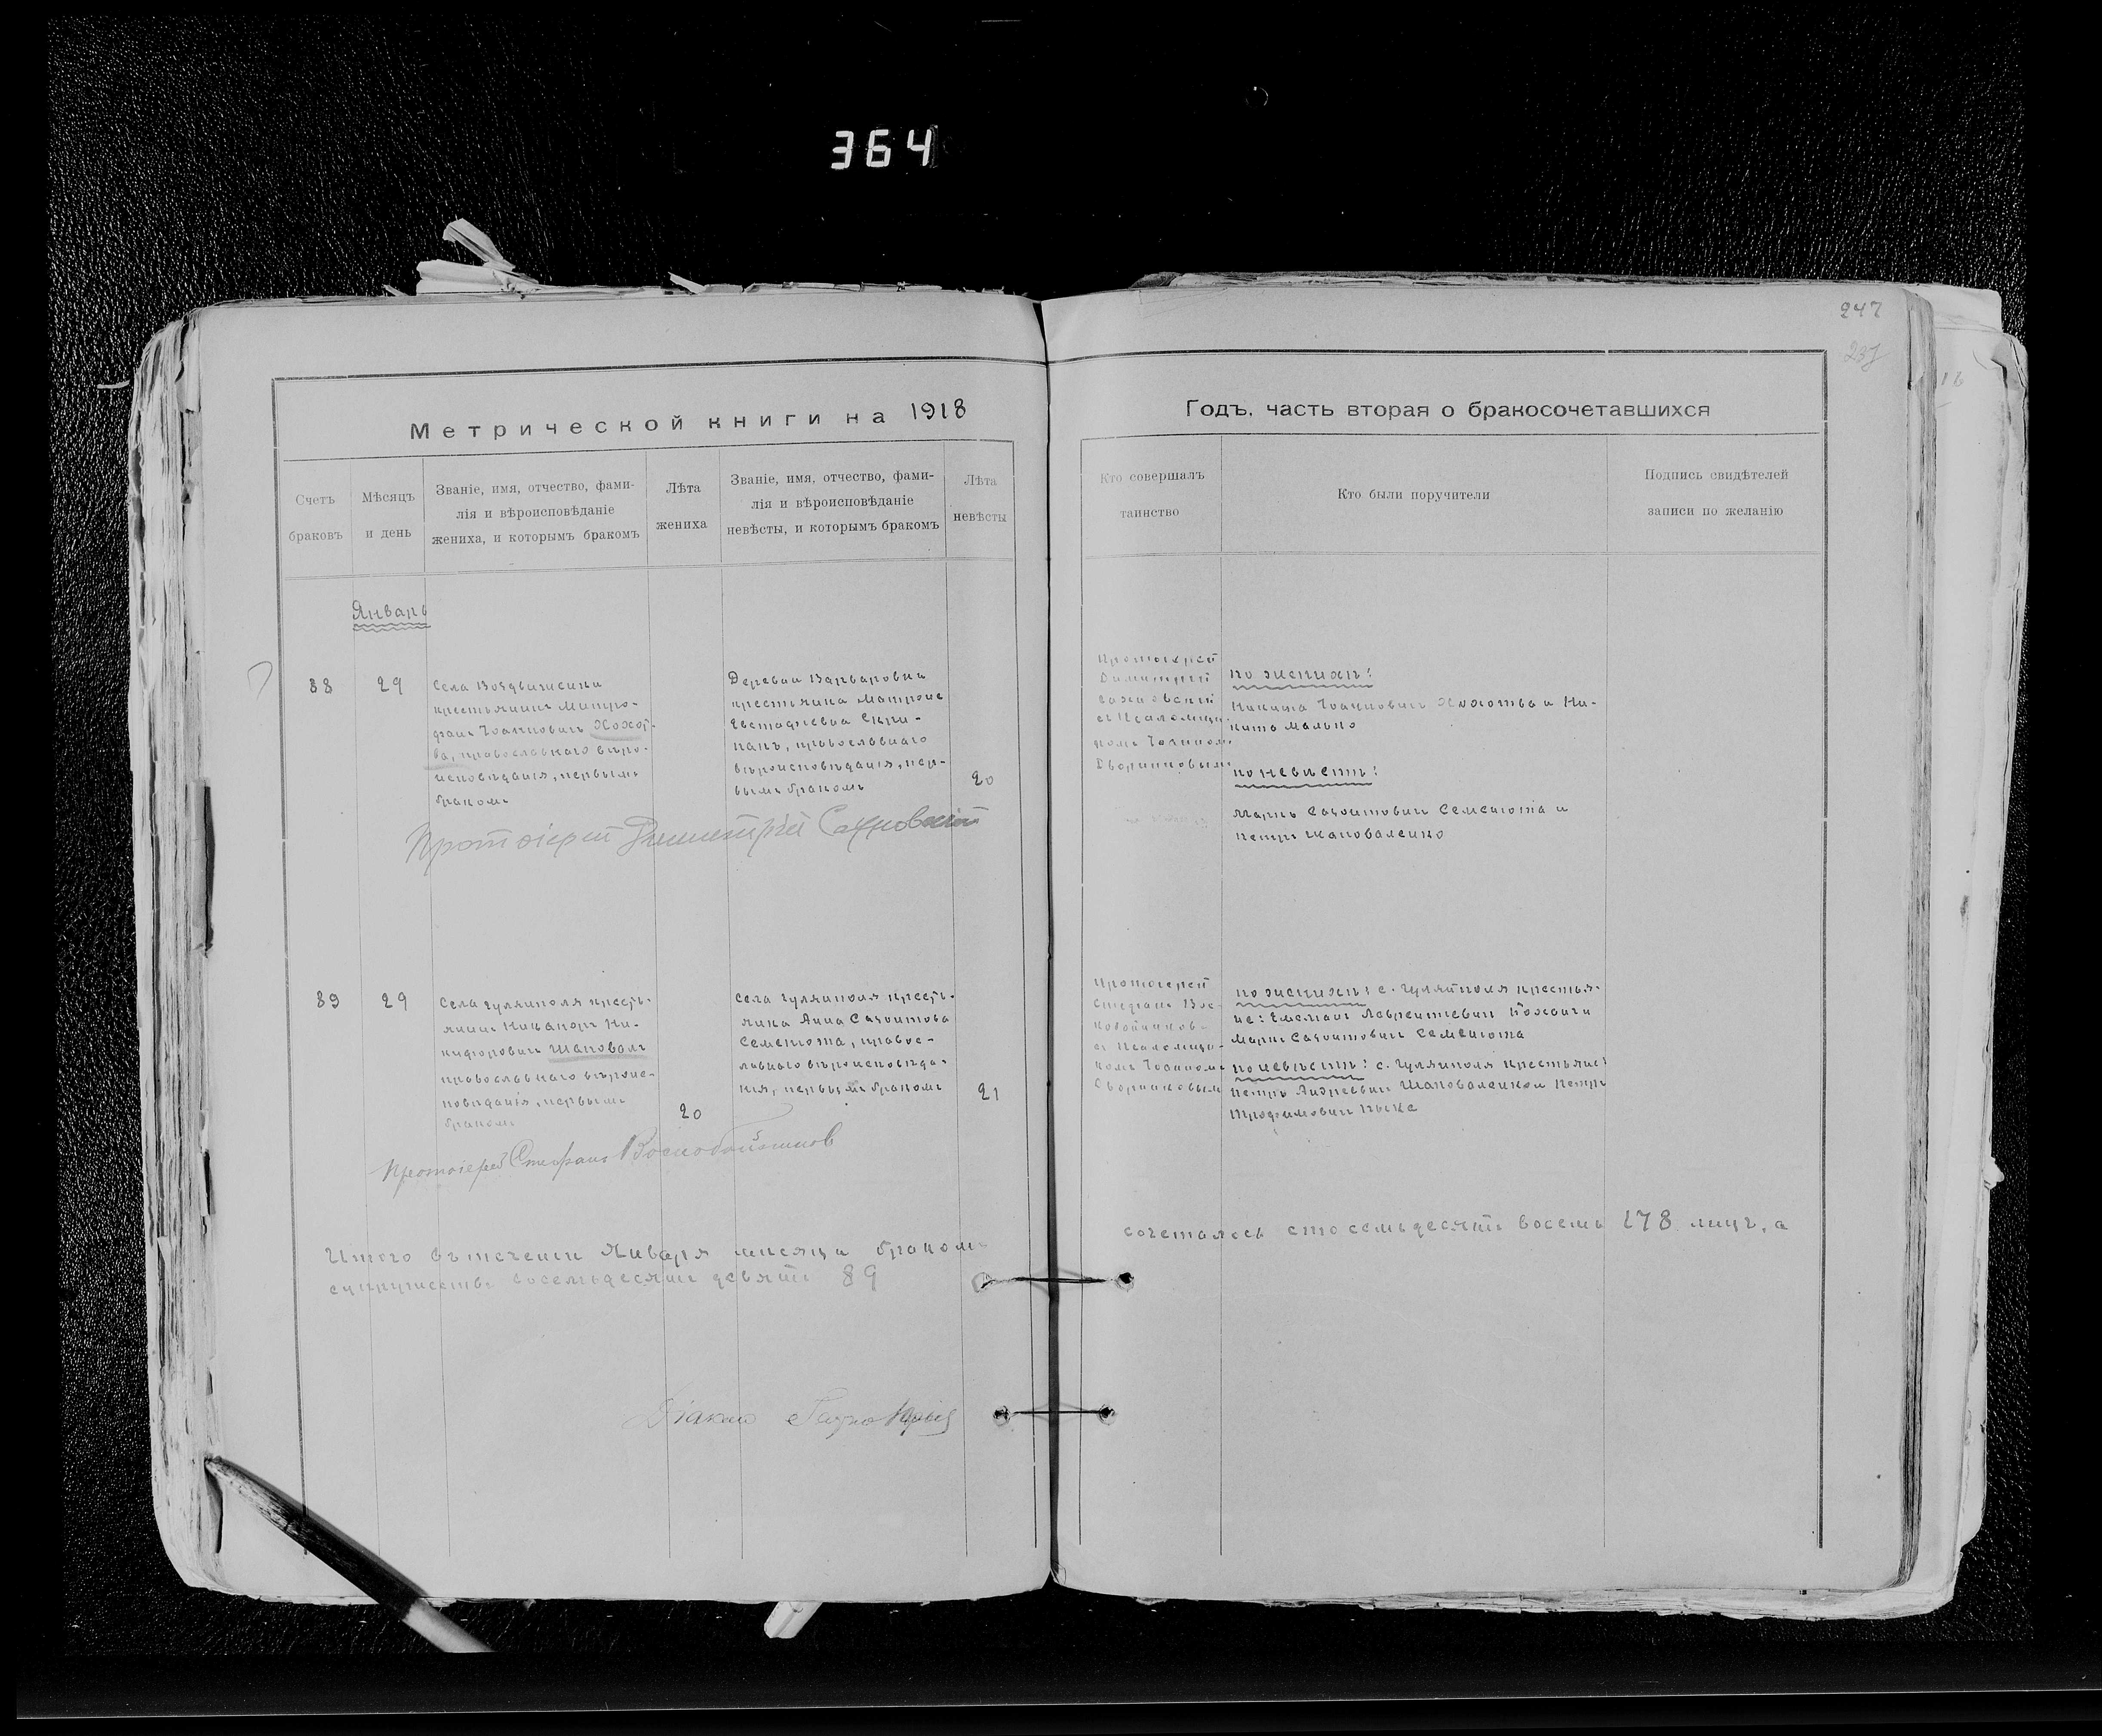 364
247
237
Метрической книги на 1918
Годъ. часть вторая о бракосочетавшихся
Счетъ
браковъ
Мѣсяцъ
и день
Званіе, имя, отчество, фами-
лія и вѣроисповѣданіе
жениха, и которымъ бракомъ
Лѣта
жениха
Званіе, имя, отчество, фами-
лія и вѣроисповѣданіе
невѣсты, и которымъ бракомъ
Лѣта
невѣсты
Кто совершалъ
таинство
Кто были поручители
Подпись свидѣтелей
записи по желанію
Январь
88
29
Села Воздвиженки
крестьянинъ Митро-
фанъ Іоанновичъ
православнаго вѣро-
исповѣданія, первымъ
бракомъ
Деревни Варваровки
крестьянка Матрона
Евстафіевна
православнаго
вѣроисповѣданія, пер-
вымъ бракомъ
20
Протоіерей
Димитрій
Сахновскій
съ Псаломщи-
комъ Іоанном
по женихѣ:
Никита Іоанновичъ и Ни-
кита Малько
по невѣстѣ:
Маркъ Сазонтовичъ Семенюта и
Петръ Шаповаленко
Протоіерей Димитрій Сахновскій
89
29
Села Гуляйполя кресть-
янинъ Никаноръ Ни-
кифоровичъ Шаповалъ
православнаго вѣроис-
повѣданія, первымъ
бракомъ
20
Села Гуляйполя кресть-
янка Анна Сазонтова
Семенюта, правос-
лавнаго вѣроисповѣда-
нія, первымъ бракомъ
21
Протоіерей
Стефанъ Вос-
кобойников-
съ Псаломщи-
комъ Іоанномъ
по женихѣ: с. Гуляйполя крестья-
не: Емеліанъ Лаврентіевичъ и
Маркъ Сазонтовичъ Семенюта
по невѣстѣ: с. Гуляйполя крестьяне:
Петръ Андреевичъ Шаповаленко и Петръ
Трофимовичъ
Протоіерей Стефанъ Воскобойников
Итого въ теченіи Января мѣсяца бракомъ
супружествъ восемьдесятъ девять 89
сочеталось сто семьдесятъ восемь 178 лицъ, а
Діаконъ